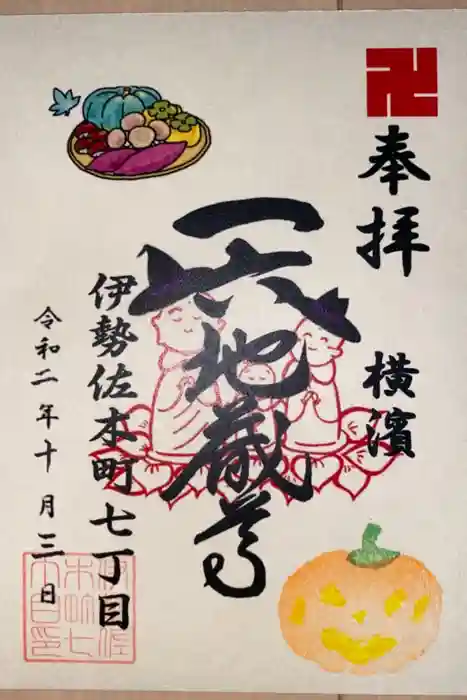 奉拝
横濱
一六地蔵尊
伊勢佐木町七丁目
令和二年十月三日